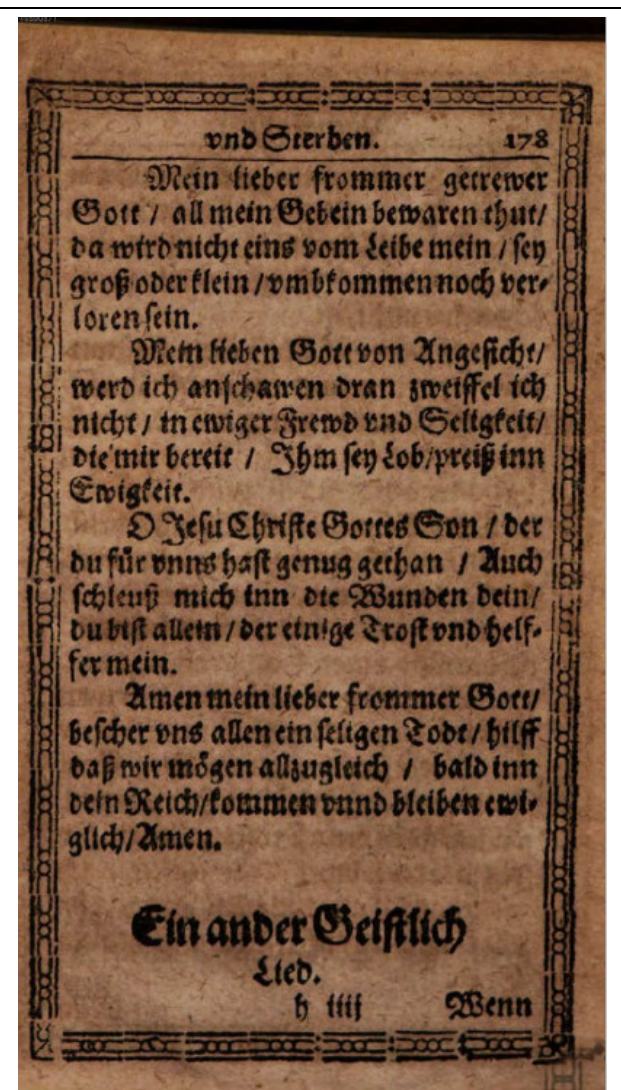 vnd Sterben. 178
Mein lieber frommer getrewer
Gott / all mein Gebein bewaren thut/
da wird nicht eins vom Leibe mein / sey
groß oder klein / vmbkommen noch ver-
loren sein.
Mein lieben Gott von Angesicht/
werd ich anschawen dran zweiffel ich
nicht / in ewiger Frewd vnd Seligkeit/
die mir bereit / Ihm sey Lob/preiß inn
Ewigkeit.
O Jesu Christe Gottes Son / der
du für vnns hast genug gethan / Auch
schleuß mich inn die Wunden dein/
du bist allein / der einige Trost vnd helf-
fer mein.
Amen mein lieber frommer Gott/
bescher vns allen ein seligen Todt / hilff
daß wir mögen allzugleich / bald inn
dein Reich/kommen vnnd bleiben ewi-
glich/Amen.
Ein ander Geistlich
Lied.
h iiij Wenn